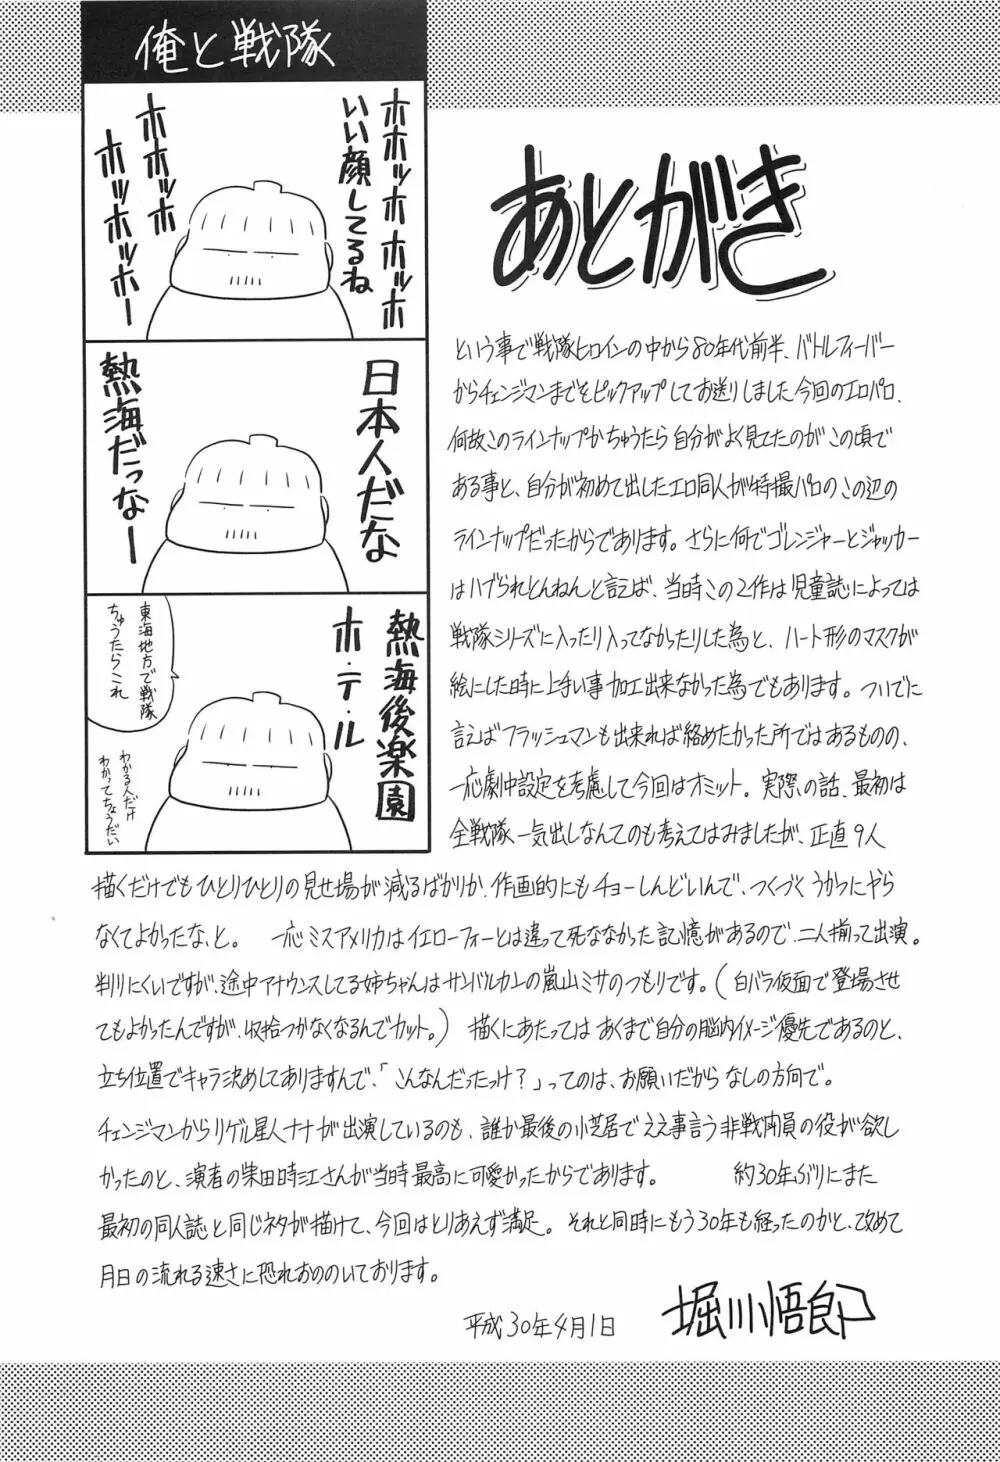 俺と戦隊
ホホッホホッホ
いい顔してるね
ホホッホ
ホッホッホー
日本人だな
熱海だっなー
熱海後楽園
ホ・テ・ル
東海地方で戦隊
ちゅうたらこれ
わかる人だけ
わかってちょうだい
あとがき
という事で戦隊ヒロインの中から80年代前半、バトルフィーバー
からチェンジマンまでをピックアップしてお送りしました今回のエロパロ、
何故このラインナップかちゅうたら自分がよく見てたのがこの頃で
ある事と、自分が初めて出したエロ同人が特撮パロのこの辺の
ラインナップだったからであります。さらに何でゴレンジャーとジャッカー
はハブられとんねんと言えば、当時この2作は児童誌によっては
戦隊シリーズに入ったり入ってなかったりした為と、ハート形のマスクが
絵にした時に上手い事加工出来なかった為でもあります。ついでに
言えばフラッシュマンも出来れば絡めたかった所ではあるものの、
一応劇中設定を考慮して今回はオミット。実際の話、最初は
全戦隊一気出しなんてのも考えてはみましたが、正直9人
描くだけでもひとりひとりの見せ場が減るばかりか、作画的にもチョーしんどいんで、つくづくうかつにやら
なくてよかったな、と。　一応ミスアメリカはイエローフォーとは違って死ななかった記憶があるので、二人揃って出演。
判りにくいですが、途中アナウンスしてる姉ちゃんはサンバルカンの嵐山ミサのつもりです。(白バラ仮面で登場させ
てもよかったんですが、収拾つかなくなるんでカット。)　描くにあたってはあくまで自分の脳内イメージ優先であるのと、
立ち位置でキャラ決めしてありますんで、「こんなんだったっけ?」ってのは、お願いだからなしの方向で。
チェンジマンからリゲル星人ナナが出演しているのも、誰か最後の小芝居でええ事言う非戦闘員の役が欲し
かったのと、演者の柴田時江さんが当時最高に可愛かったからであります。　約30年ぶりにまた
最初の同人誌と同じネタが描けて、今回はとりあえず満足。それと同時にもう30年も経ったのかと、改めて
月日の流れる速さに恐れおののいております。
平成30年4月1日
堀川悟郎